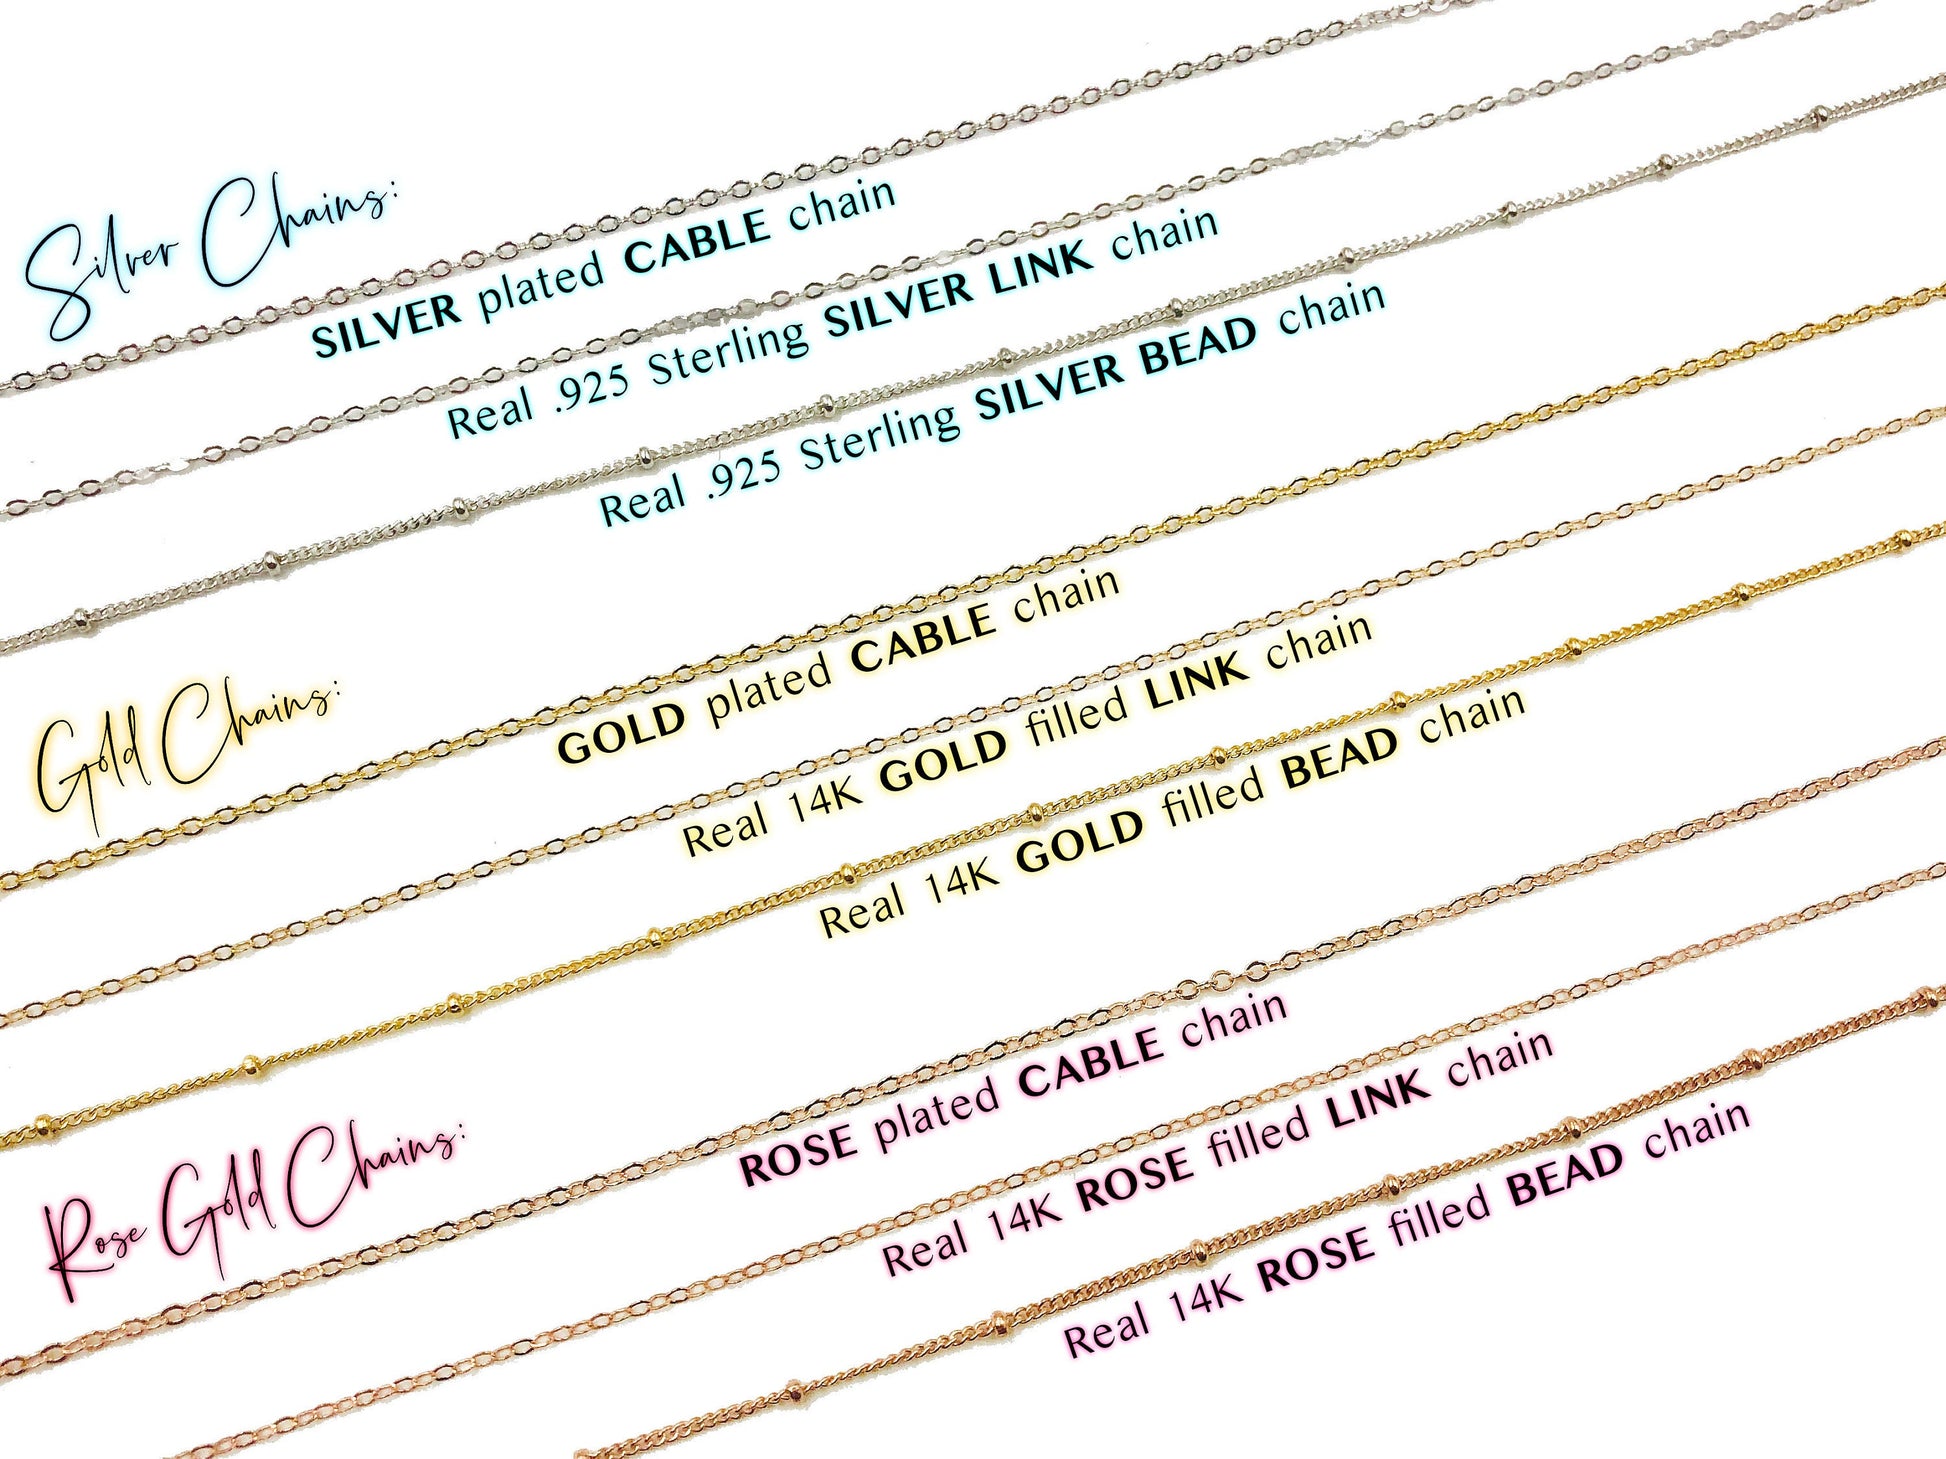 Silver Chains:
SILVER plated CABLE chain
Real .925 Sterling SILVER LINK chain
Real .925 Sterling SILVER BEAD chain
Gold Chains:
GOLD plated CABLE chain
Real 14K GOLD filled LINK chain
Real 14K GOLD filled BEAD chain
Rose Gold Chains:
ROSE plated CABLE chain
Real 14K ROSE filled LINK chain
Real 14K ROSE filled BEAD chain